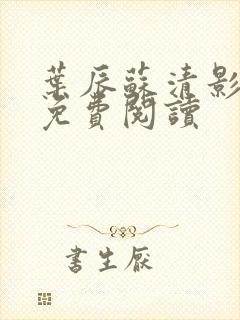 葉辰蘇清影
免費閱讀
書生厭